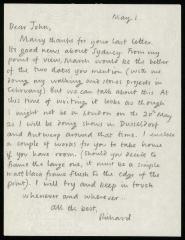 May 1
Dear John,
Many thanks for your last letter.
Its good news about Sydney. From my
point of view, March would be the better
of the two dates you mention (with me
doing my walking and stones projects in
February) But we can talk about this. At
this time of writing it looks as though
I might not be in London on the 20th May
as I will be doing shows in Dusseldorf
and Antwerp around that time. I enclose
a couple of works for you to take home
if you have room. (Should you decide to
frame the large one, it must be a simple
matt black frame flush to the edge of the
print). I will try and keep in touch
whenever and wherever...
all the best,
Richard